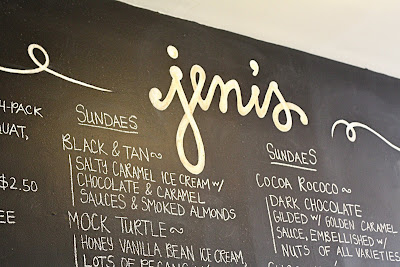 jeni's
4-PACK
QUAT,
$2.50
EE
SUNDAES
BLACK & TAN~
SALTY CARAMEL ICE CREAM w/
CHOCOLATE & CARAMEL
SAUCES & SMOKED ALMONDS
MOCK TURTLE~
HONEY VANILLA BEAN ICE CREAM,
LOTS OF PECANS
SUNDAES
COCOA ROCOCO~
DARK CHOCOLATE
GILDED w/ GOLDEN CARAMEL
SAUCE, EMBELLISHED w/
NUTS OF ALL VARIETIES